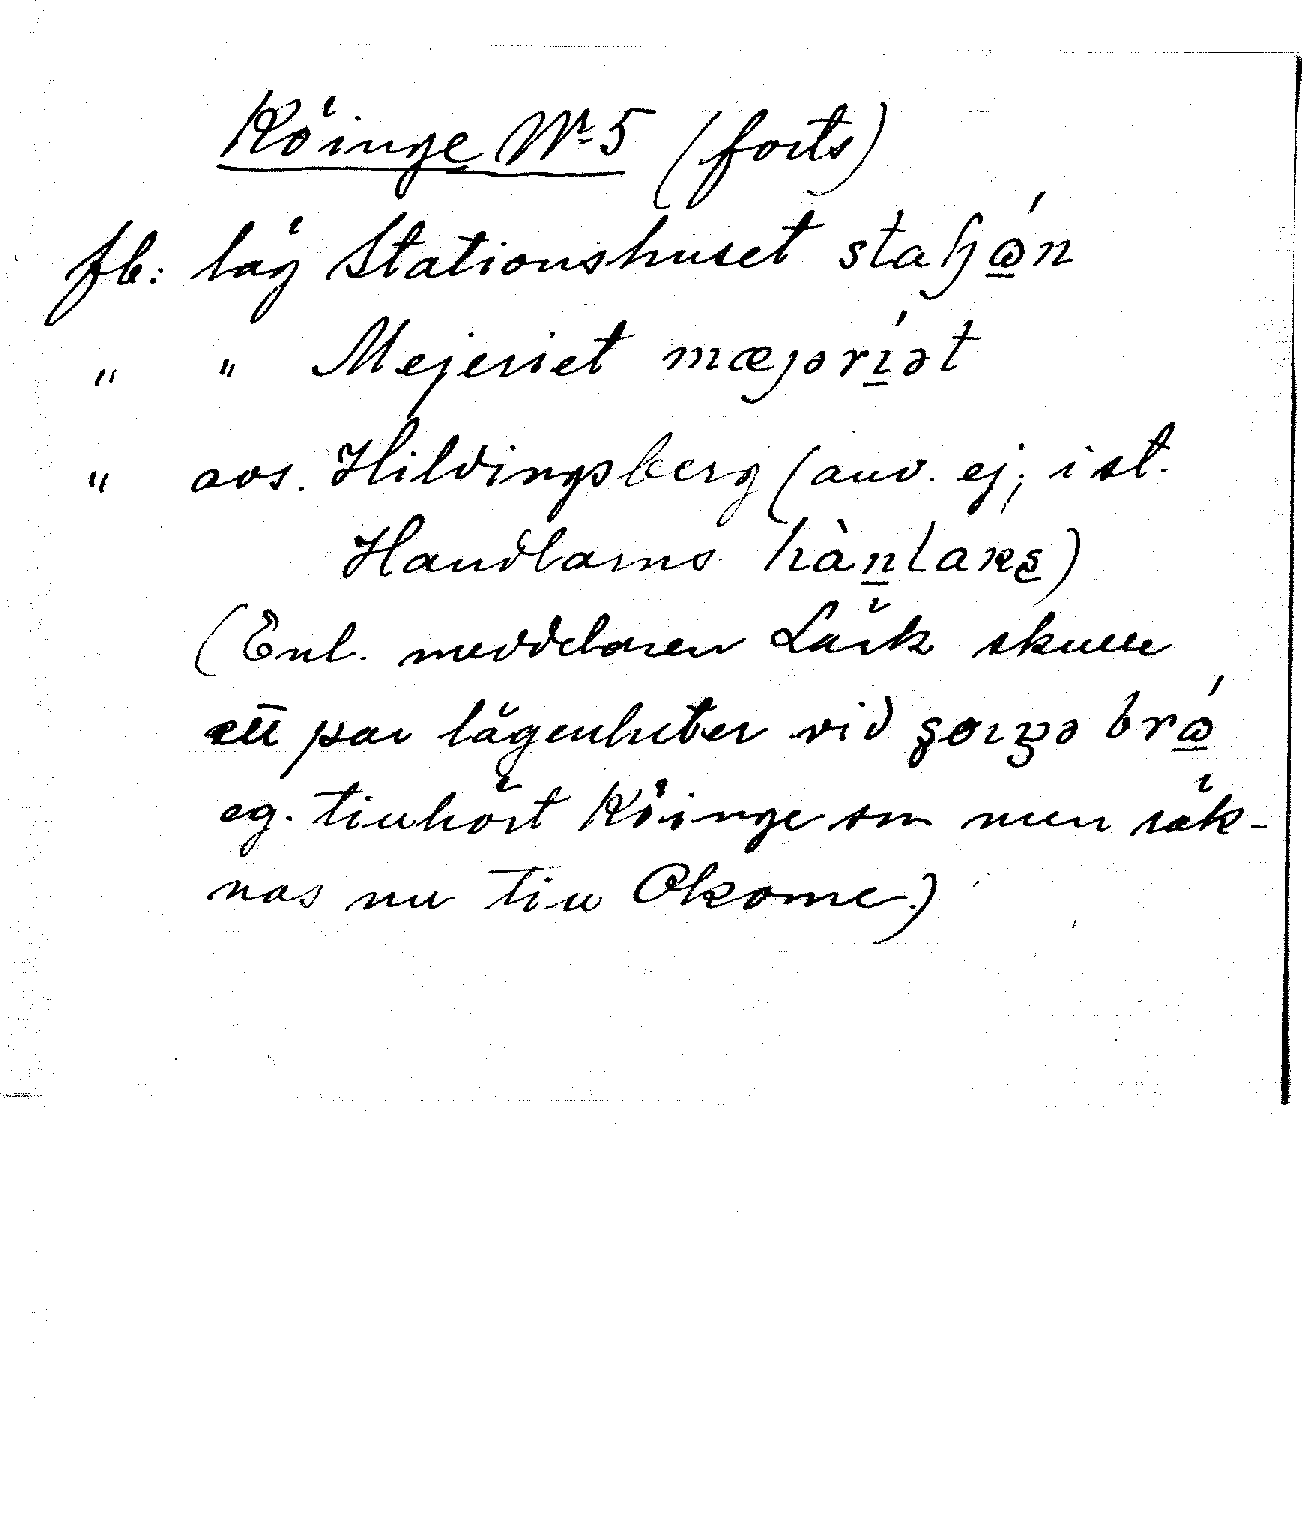 Köinge Nr 5 (forts)
fb: läg Stationshuset staɧώ̲n
" " Mejeriet mæjərí̲ət
" avs. Hildingsberg (anv. ej; i st.
Handlarns hàn̲laʀs̨)
(Enl. meddelaren Lärk skulle
ett par lägenheter vid brώ̲
eg. tillhört Köinge sn men räk-
nas nu till Okome.)